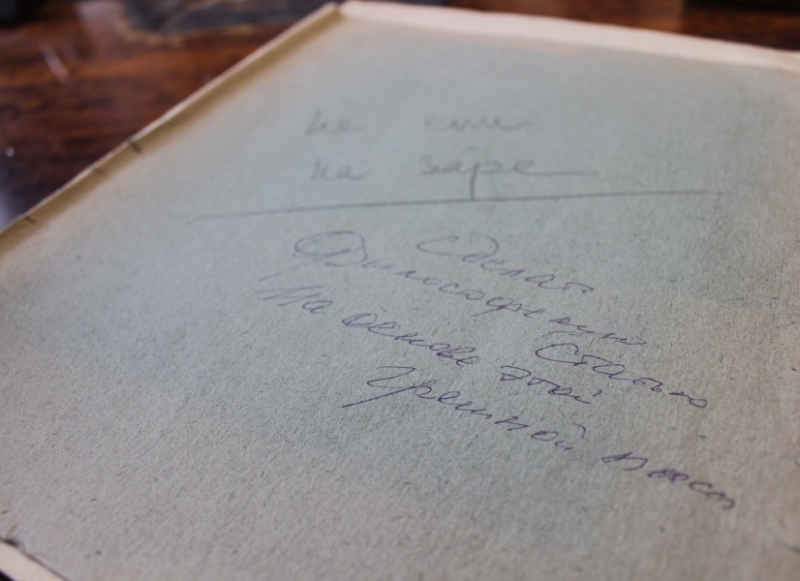 не спи
на заре
Сделат
Философскую
статью
На основе этой
грешной пьесы